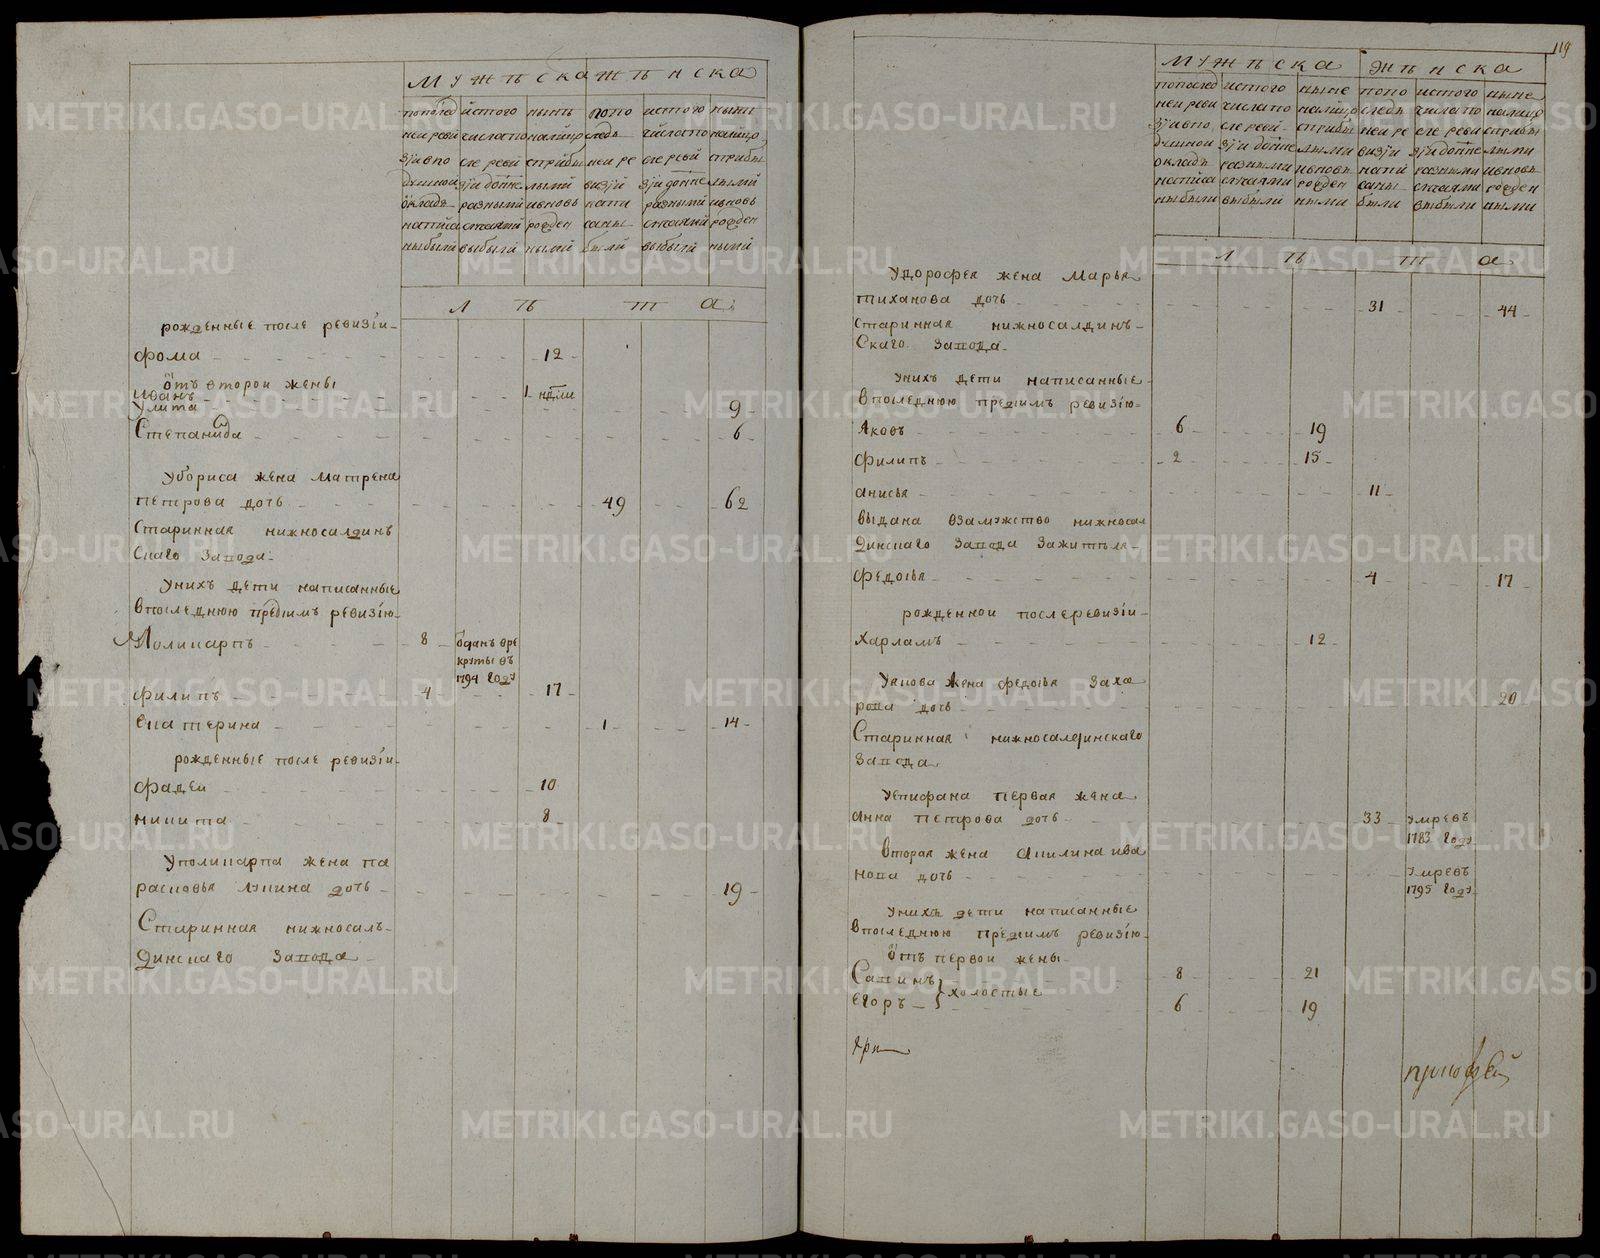 мужеска женска
по послед ней реви зии в по душной окладъ написа ны были
ис того числа по сле реви зии до нне разными случаями выбыли
ныне на лицо с прибы лыми и вновь рожден ными
по по следъ ней ре визии напи саны были
ис того числа по сле реви зии до нне разными случаями выбыли
ныне на лицо с прибы лыми и вновь рожден ными
лѣта
рожденные после ревизiи
фома 12
отъ второи жены
Иванъ 1 ндли
Улита 9
Степанида 6
У бориса жена матрена
петрова дочь 49 62
Старинная нижносалдинъ
скаго завода
У нихъ дети написанные
в последнюю предимъ ревизiю
Поликарпъ 8 одданъ вре
круты въ
1794 году
филипъ 4 17
Екатерина 1 14
рожденные после ревизiи
фадеи 10
никита 8
У поликарпа жена па
расковья лукина дочь 19
Старинная нижносалъ
динскаго завода
119
мужеска женска
по послед ней реви зии в по душной окладъ написа ны были
ис того числа по сле реви зии до нне разными случаями выбыли
ныне на лицо с прибы лыми и вновь рожден ными
по по следъ ней ре визии напи саны были
ис того числа по сле реви зии до нне разными случаями выбыли
ныне на лицо с прибы лыми и вновь рожден ными
лѣта
У дорофея жена марья
тиханова дочь 31 44
старинная нижносалдинъ
скаго завода
У нихъ дети написанные
в последнюю предимъ ревизiю
Яковъ 6 19
филипъ 2 15
анисья 11
выдана взамужство нижносал
динскаго завода зажителя
федосья 4 17
рожденнои после ревизiи
харламъ 12
У якова жена федосья заха
рова дочь 20
Старинная нижносалдинскаго
завода
У епифана первая жена
анна петрова дочь 33 умре въ
1783 году
вторая жена акилина ива
нова дочь умре въ
1795 году
У нихъ дети написанные
в последнюю предимъ ревизiю
отъ первои жены
Савинъ } холостые 8 21
Егоръ 6 19
METRIKI.GASO-URAL.RU